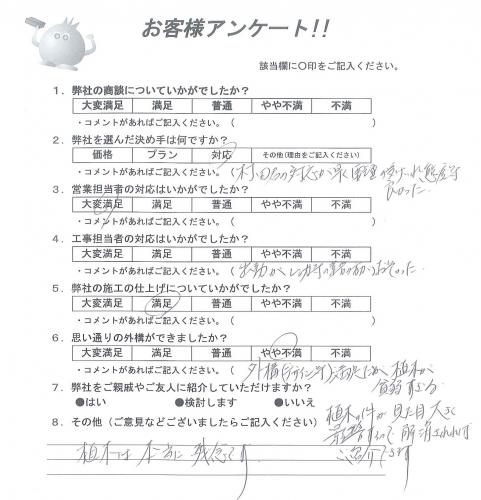 お客様アンケート!!
該当欄に○印をご記入ください。
1. 弊社の商談についていかがでしたか?
大変満足 満足 普通 やや不満 不満
・コメントがあればご記入ください。( )
2. 弊社を選んだ決め手は何ですか?
価格 プラン 対応 その他(理由をご記入ください)
・コメントがあればご記入ください。(
良かった.
3. 営業担当者の対応はいかがでしたか?
大変満足 満足 普通 やや不満 不満
・コメントがあればご記入ください。( )
4. 工事担当者の対応はいかがでしたか?
大変満足 満足 普通 やや不満 不満
・コメントがあればご記入ください。(
5. 弊社の施工の仕上げについていかがでしたか?
大変満足 満足 普通 やや不満 不満
・コメントがあればご記入ください。( )
6. 思い通りの外構ができましたか?
大変満足 満足 普通 やや不満 不満
・コメントがあればご記入ください。( 外構 植木が
貧弱すぎる
7. 弊社をご親戚やご友人に紹介していただけますか?
●はい ●検討します ●いいえ
植木の件が 見た目 大きく
解消されれば
ご紹介できます
8. その他(ご意見などございましたらご記入ください)
植木は 本当に 残念です